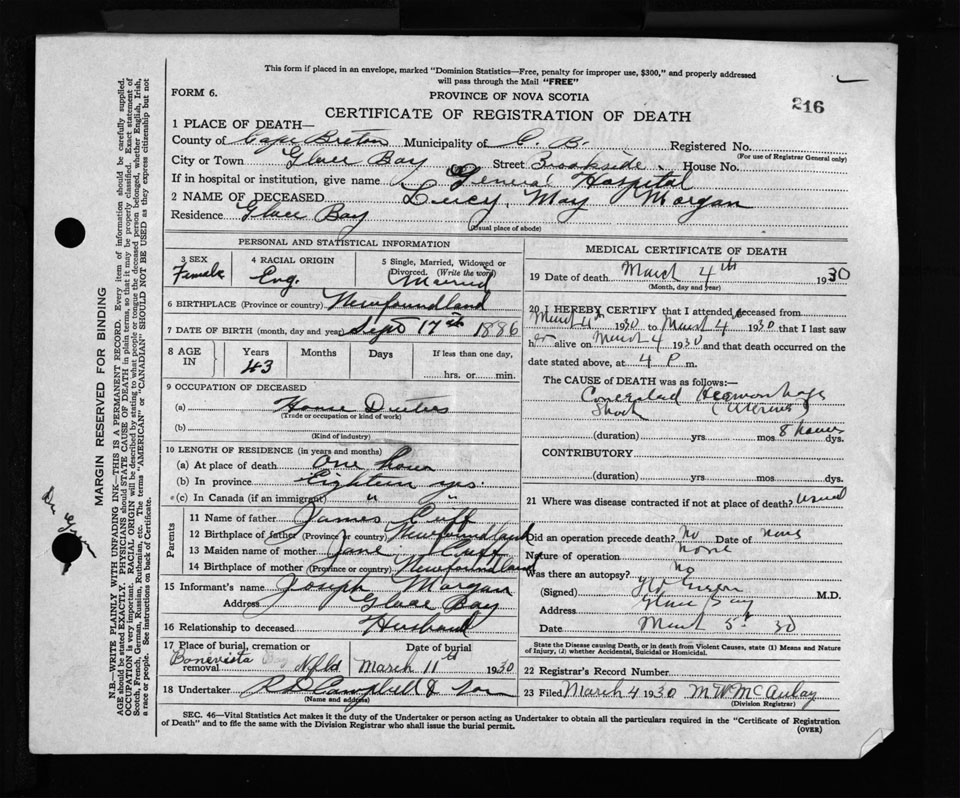 This form if placed in an envelope, marked "Dominion Statistics—Free, penalty for improper use, $300," and properly addressed
will pass through the Mail "FREE"
FORM 6.
PROVINCE OF NOVA SCOTIA
216
CERTIFICATE OF REGISTRATION OF DEATH
1 PLACE OF DEATH—
County of Cape Breton Municipality of C. B. Registered No.
(For use of Registrar General only)
City or Town Glace Bay Street Brookside House No.
If in hospital or institution, give name General Hospital
2 NAME OF DECEASED Lucy May Morgan
Residence Glace Bay
(Usual place of abode)
PERSONAL AND STATISTICAL INFORMATION
3 SEX
Female
4 RACIAL ORIGIN
Eng.
5 Single, Married, Widowed or
Divorced. (Write the word)
Married
6 BIRTHPLACE (Province or country) Newfoundland
7 DATE OF BIRTH (month, day and year) Sept 17th 1886
8 AGE IN
Years
43
Months
Days
If less than one day,
hrs. or min.
9 OCCUPATION OF DECEASED
(a) House Duties
(Trade or occupation or kind of work)
(b)
(Kind of industry)
10 LENGTH OF RESIDENCE (in years and months)
(a) At place of death one hour
(b) In province Eighteen yrs.
(c) In Canada (if an immigrant) " "
Parents
11 Name of father James Cuff
12 Birthplace of father (Province or country) Newfoundland
13 Maiden name of mother Jane Cuff
14 Birthplace of mother (Province or country) Newfoundland
15 Informant's name Joseph Morgan
Address Glace Bay
16 Relationship to deceased Husband
17 Place of burial, cremation or
removal
Bonavista Bay Nfld
Date of burial
March 11th 1930
18 Undertaker Campbell & Son
(Name and address)
MEDICAL CERTIFICATE OF DEATH
19 Date of death March 4th 1930
(Month, day and year)
20 I HEREBY CERTIFY that I attended deceased from
March 4th 1930 to March 4th 1930 that I last saw
her alive on March 4 1930 and that death occurred on the
date stated above, at 4 P. m.
The CAUSE OF DEATH was as follows:—
Concealed Hemorrhage
Shock (Uterine)
(duration) yrs mos 8 hours dys.
CONTRIBUTORY
(duration) yrs mos dys.
21 Where was disease contracted if not at place of death? usual
Did an operation precede death? No Date of none
Nature of operation none
Was there an autopsy? No
(Signed) M.D.
Address Glace Bay
Date March 5th 30
State the Disease causing Death, or in death from Violent Causes, state (1) Means and Nature
of Injury, (2) whether Accidental, Suicidal or Homicidal.
22 Registrar's Record Number
23 Filed March 4 1930 M W McAulay
(Division Registrar)
SEC. 46—Vital Statistics Act makes it the duty of the Undertaker or person acting as Undertaker to obtain all the particulars required in the "Certificate of Registration
of Death" and to file the same with the Division Registrar who shall issue the burial permit.
(OVER)
MARGIN RESERVED FOR BINDING
N.B.—WRITE PLAINLY WITH UNFADING INK—THIS IS A PERMANENT RECORD. Every item of information should be carefully supplied.
AGE should be stated EXACTLY. PHYSICIANS should STATE CAUSE OF DEATH in plain terms, so that it may be properly classified. Exact statement of
OCCUPATION is very important. RACIAL ORIGIN will be described by stating to what people or tongue the deceased person belonged, whether English, Irish,
Scotch, French, German, Russian, Ruthenian, etc. The terms "AMERICAN" or "CANADIAN" SHOULD NOT BE USED as they express citizenship but not
a race or people. See instructions on back of Certificate.